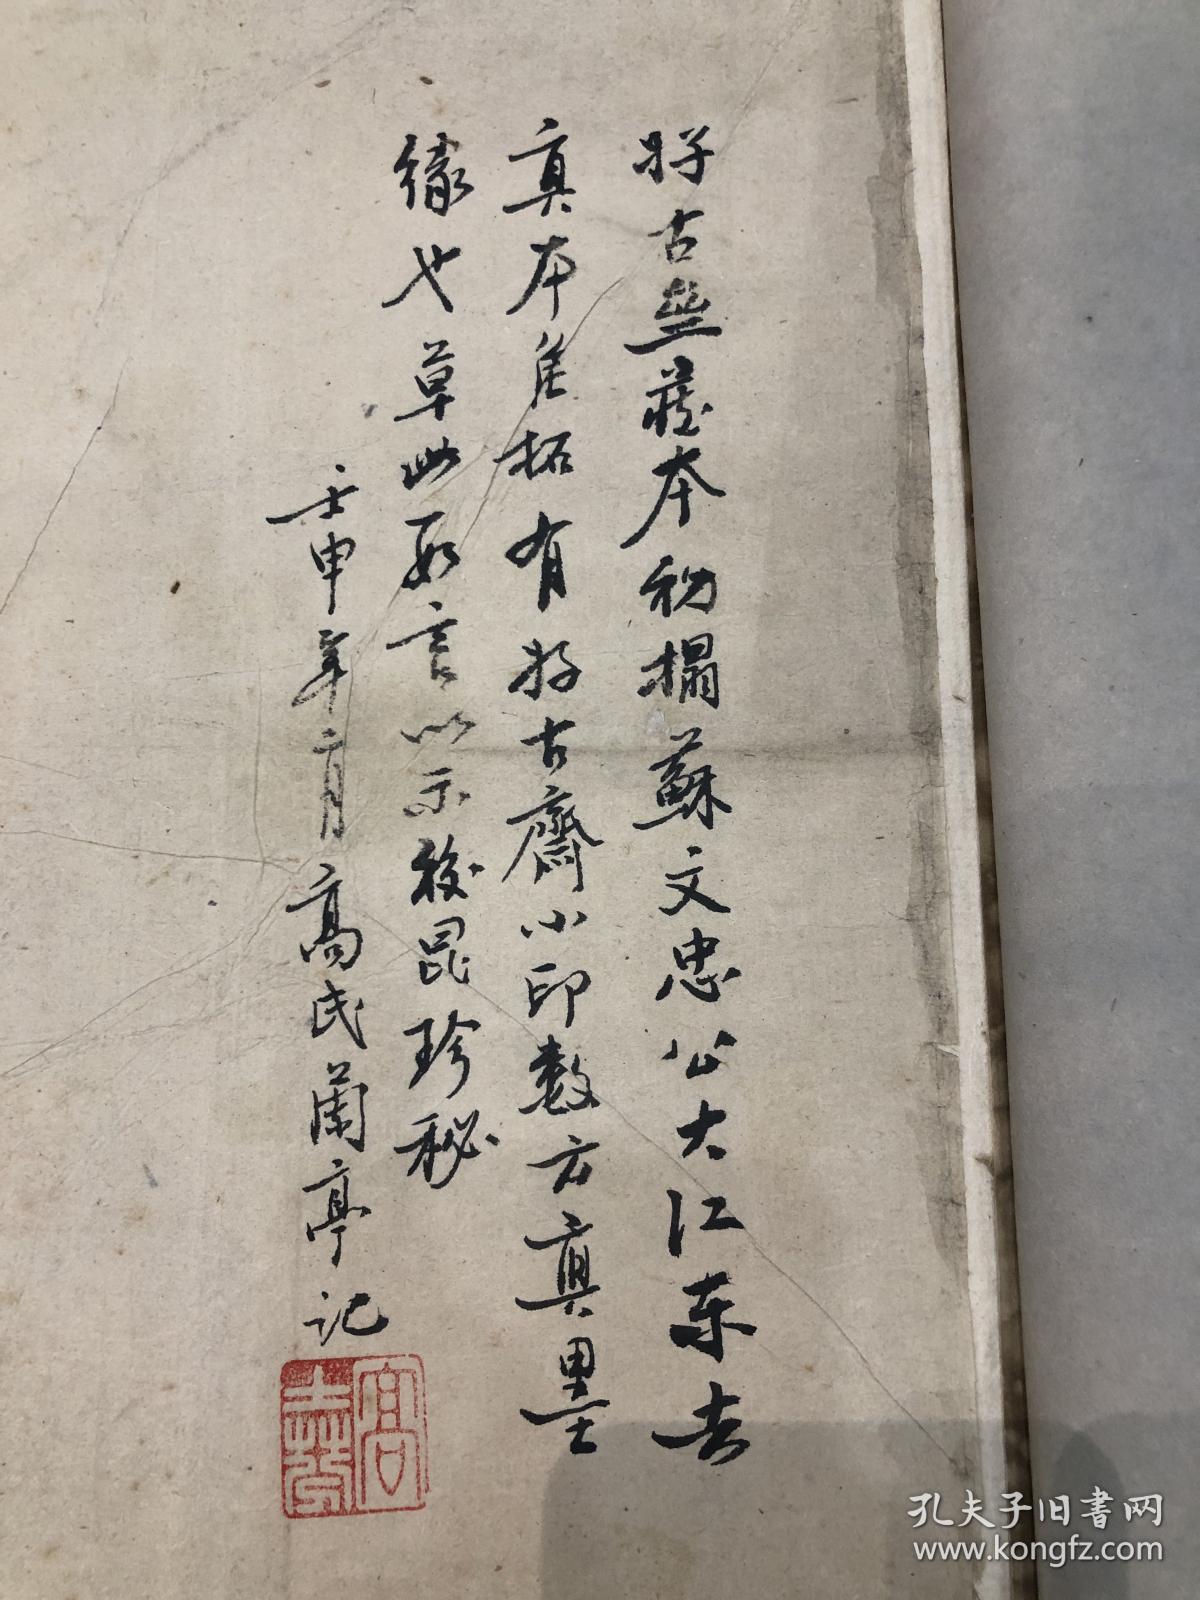 好古堂藏本初搨蘇文忠公大江東去
真本隹拓有好古齋小印數方真墨
緣也草此數言以示後昆珍秘
壬申年二月高氏蘭亭記
孔夫子旧书网
www.kongfz.com